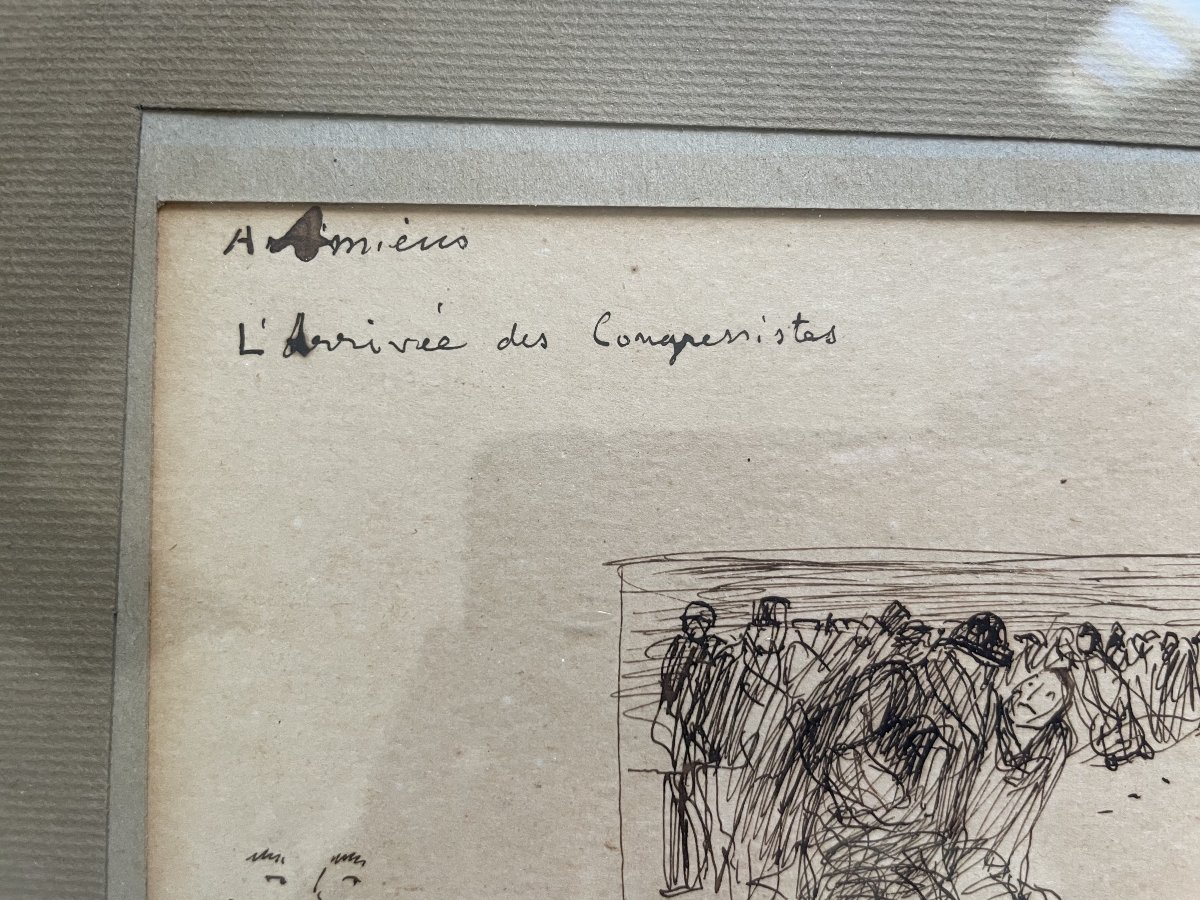 A Amiens
L'Arrivée des Congressistes